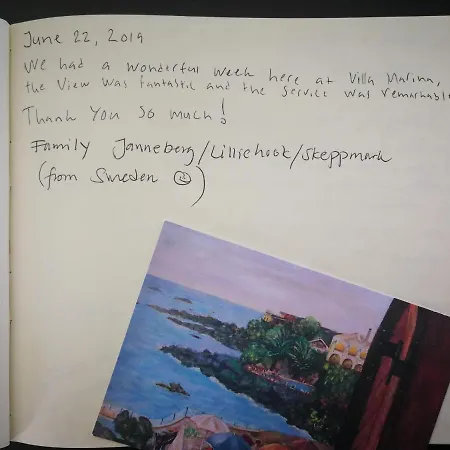 June 22, 2019
We had a wonderful week here at Villa Marina,
the view was fantastic and the service was remarkable
Thank you so much!
Family Janneberg/Lilliehook/Skeppmark
(from Sweden ☺)